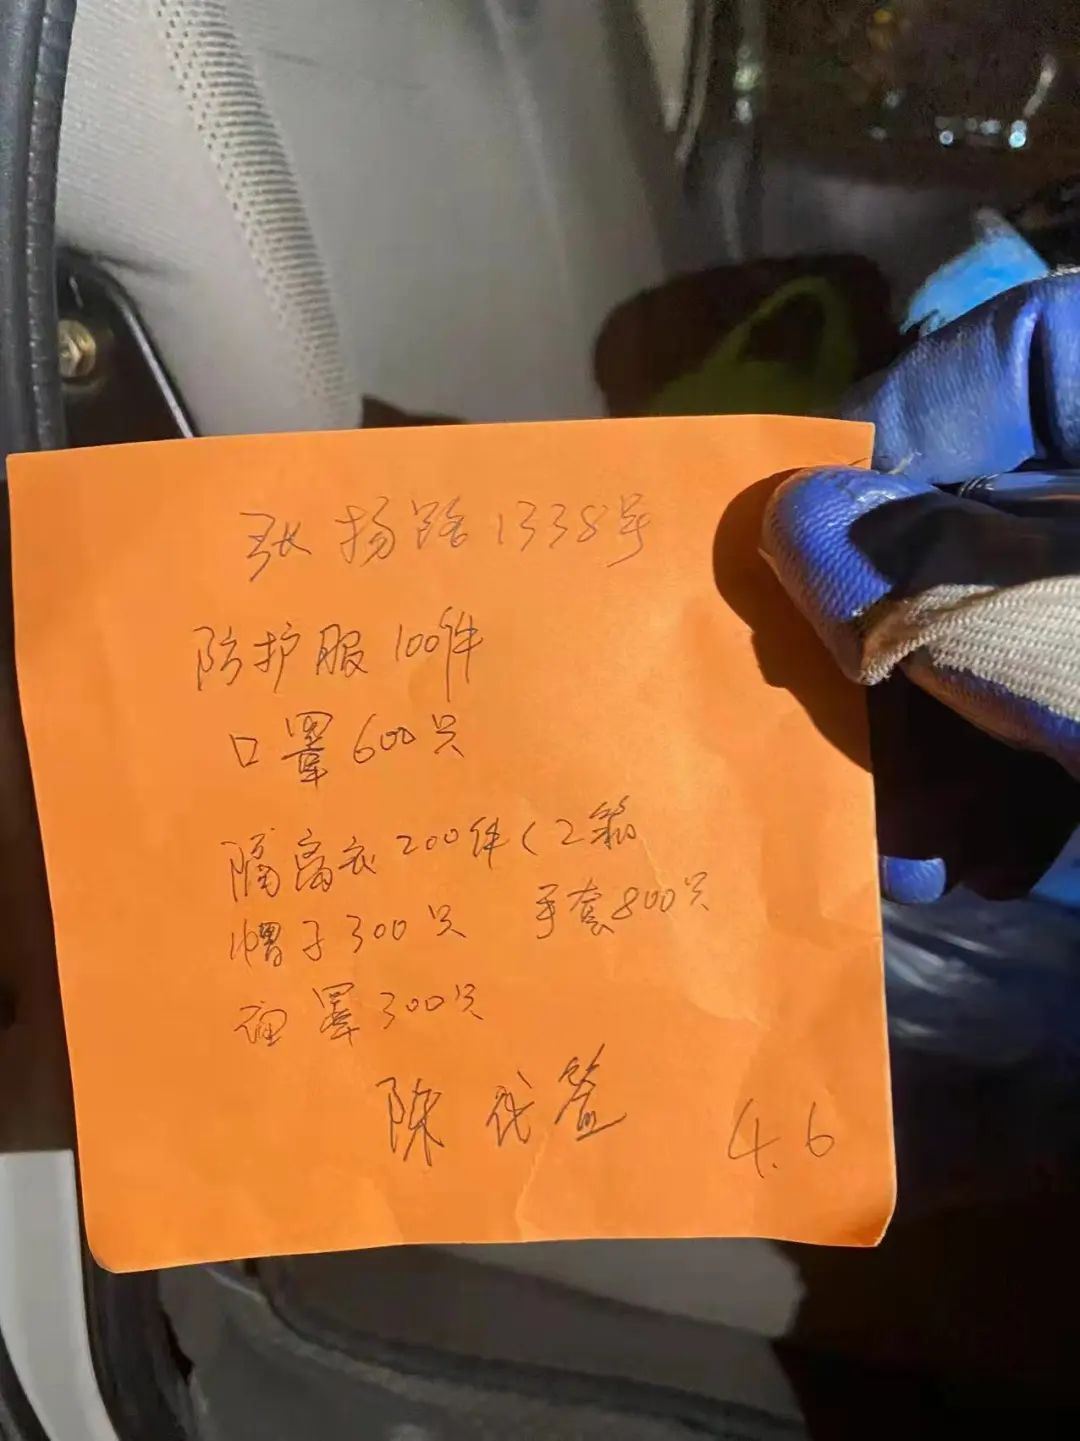 张扬路1338号
防护服100件
口罩600只
隔离衣200件(2箱
帽子300只 手套800只
面罩300只
陈代签
4.6